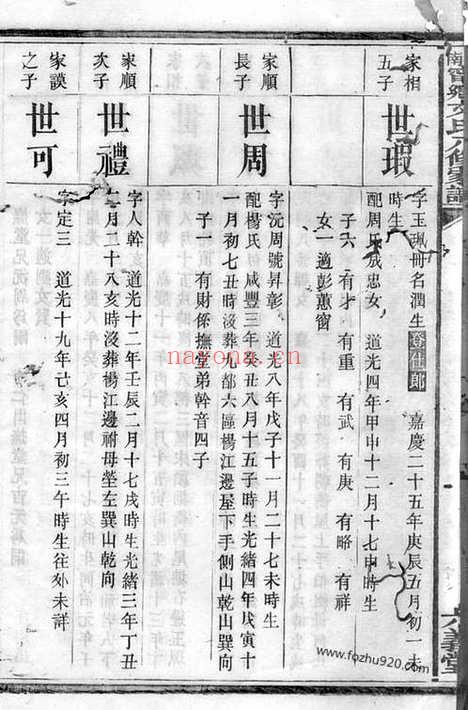 家相
五子
世瑕
字玉珮冊名潤生登仕郎 嘉慶二十五年庚辰五月初一未
時生
配周氏成忠女 道光四年甲申十二月十七申時生
子六 有才 有重 有武 有庚 有略 有祥
女一適彭蕙窗
家順
長子
世周
字沅周號昇彰 道光八年戊子十一月二十七未時生
配楊氏 咸豐三年癸丑八月十五子時生光緒四年戊寅十
一月初七丑時沒葬九都六區楊江邊屋下手側山乾山巽向
子一 有財係撫堂弟幹音四子
家順
次子
世禮
字人幹 道光十二年壬辰二月十七戌時生光緒三年丁丑
十二月二十八亥時沒葬楊江邊祔母塋左巽山乾向
家謨
之子
世可
字定三 道光十九年己亥四月初三午時生往外未詳
氏八修家譜
六義堂
nayona.cn
www.fozhu920.com